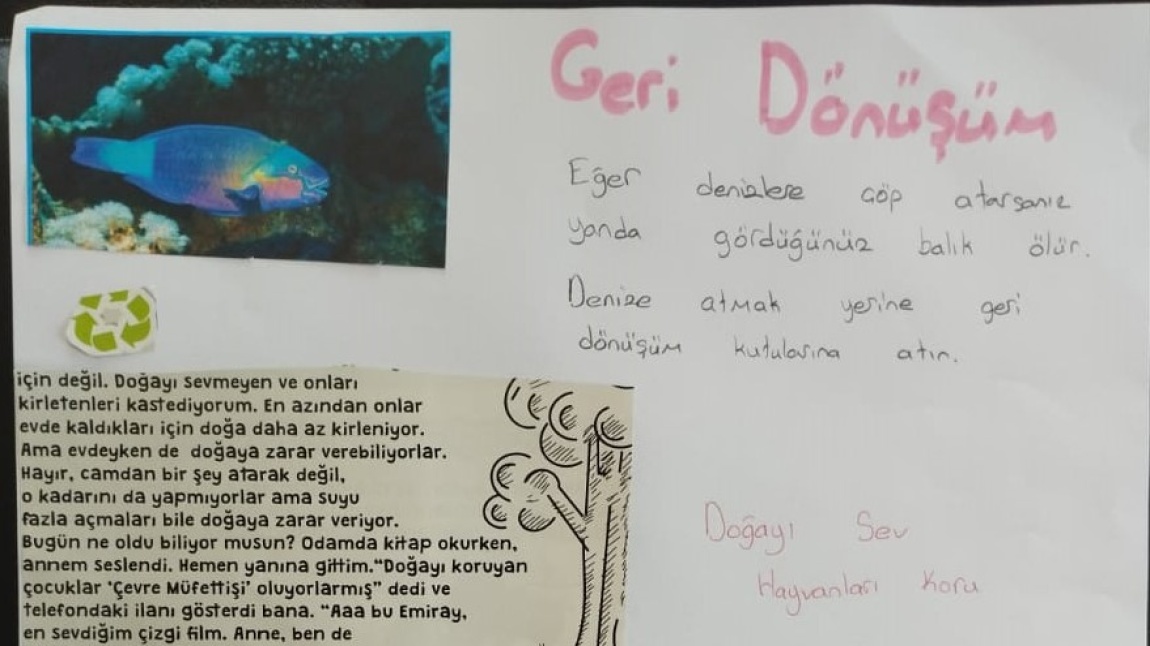 Geri Dönüşüm
Eğer denizlere çöp atarsanız
yanda gördüğünüz balık ölür.
Denize atmak yerine geri
dönüşüm kutularına atın.
için değil. Doğayı sevmeyen ve onları
kirletenleri kastediyorum. En azından onlar
evde kaldıkları için doğa daha az kirleniyor.
Ama evdeyken de doğaya zarar verebiliyorlar.
Hayır, camdan bir şey atarak değil,
o kadarını da yapmıyorlar ama suyu
fazla açmaları bile doğaya zarar veriyor.
Bugün ne oldu biliyor musun? Odamda kitap okurken,
annem seslendi. Hemen yanına gittim."Doğayı koruyan
çocuklar 'Çevre Müfettişi' oluyorlarmış" dedi ve
telefondaki ilanı gösterdi bana. "Aaa bu Emiray,
en sevdiğim çizgi film. Anne, ben de
Doğayı Sev
Hayvanları Koru